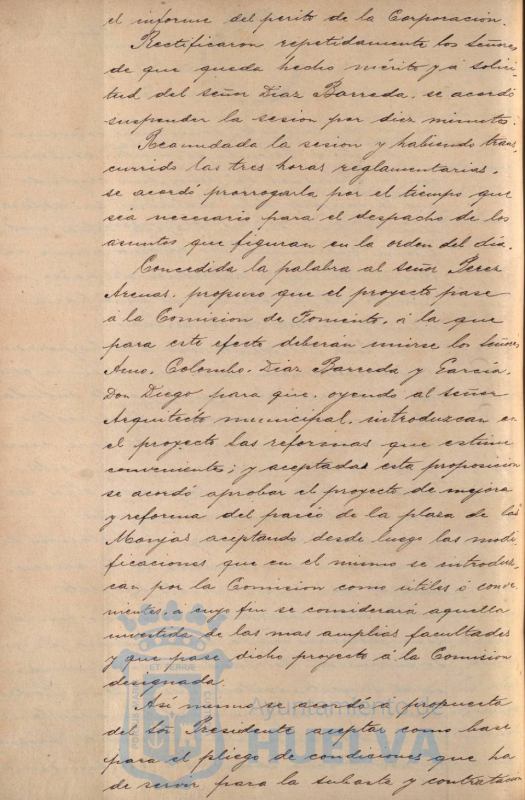 el informe del perito de la Corporacion.
Rectificaron repetidamente los Señores
de que queda hecho mérito y á solici-
tud del señor Diaz Barreda, se acordó
suspender la sesion por diez minutos.
Reanudada la sesion y habiendo trans-
currido las tres horas reglamentarias,
se acordó prorrogarla por el tiempo que
sea necesario para el despacho de los
asuntos que figuran en la orden del dia.
Concedida la palabra al señor Perez
Arenas, propuso que el proyecto pase
á la Comision de Fomento, á la que
para este efecto deberán unirse los Señores
Amo, Colombo, Diaz Barreda y García,
Don Diego para que, oyendo al señor
Arquitecto municipal, introduzcan en
el proyecto las reformas que estime
convenientes; y aceptada esta proposicion
se acordó aprobar el proyecto de mejora
y reforma del paseo de la plaza de las
Monjas aceptando desde luego las modi-
ficaciones que en el mismo se introduz-
can por la Comision como útiles ó conve-
nientes, á cuyo fin se considerará aquella
investida de las mas amplias facultades
y que pase dicho proyecto á la Comision
designada.
Asi mismo se acordó á propuesta
del Sor Presidente aceptar como base
para el pliego de condiciones que ha
de servir para la subasta y contratacion
Ayuntamiento de
HUELVA